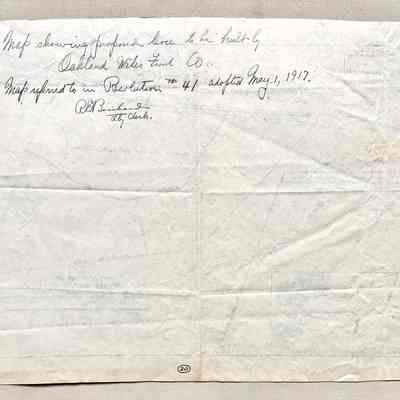 Map showing proposed line to be built by
Oakland Water Front Co..
Map referred to in Resolution No 41 adopted May 1, 1917.
City Clerk.
20